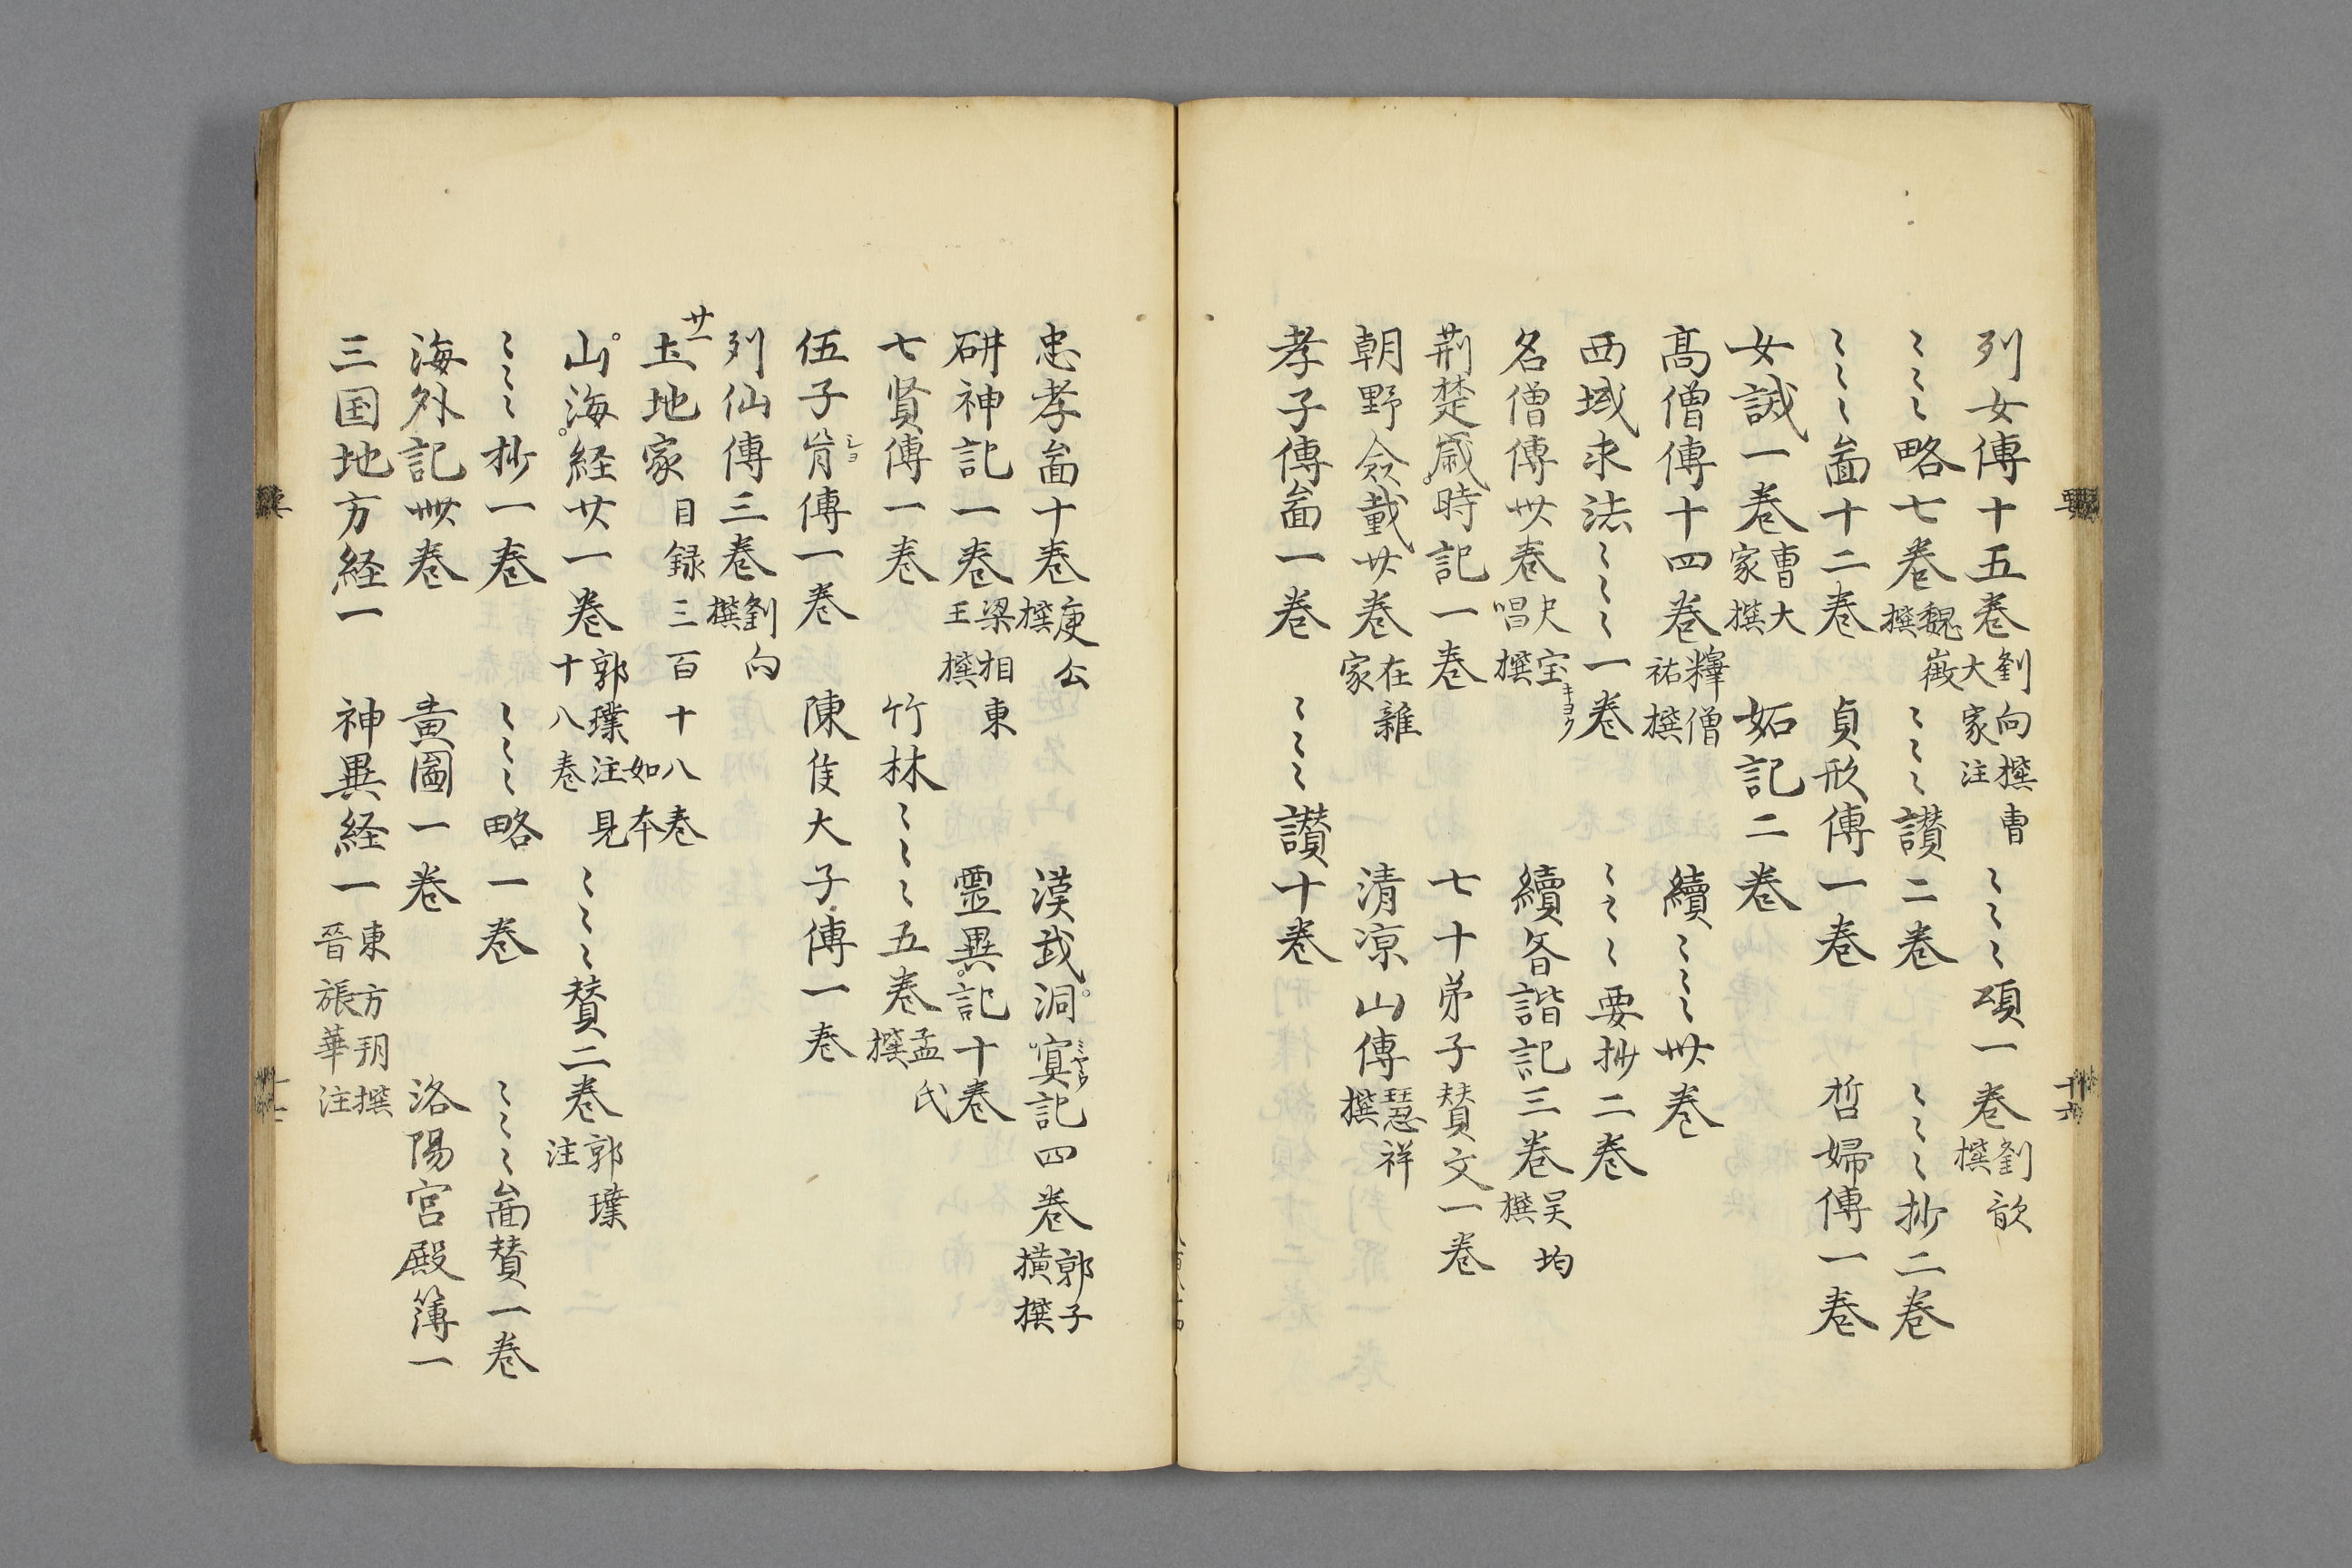 列女傳十五巻 劉向撰曹大家注 〻〻〻頌一巻 劉歆撰
〻〻〻略七巻 魏徴撰 〻〻〻讃二巻 〻〻〻抄二巻
〻〻〻啚十二巻 貞形傳一巻 哲婦傳一巻
女誡一巻 曹大家撰 妬記二巻
髙僧傳十四巻 釋僧祐撰 續〻〻〻卅巻
西域求法〻〻〻一巻 〻〻〻要抄二巻
名僧傳卅巻 尺宝唱撰 キヨク 續斉諧記三巻 吴均撰
荊楚歳時記一巻 七十弟子賛文一巻
朝野僉載廿巻 在雜家 清凉山傳 慧祥撰
孝子傳啚一巻 〻〻〻讚十巻
忠孝啚十巻 庾公撰 漢武洞冥記四巻 郭子橫撰
硏神記一巻 梁相東王撰 霊異記十巻
七賢傳一巻 竹林〻〻〻五巻 孟氏撰
伍子胥傳一巻 陳隻大子傳一巻
列仙傳三巻 劉向撰
廿一
土地家 目録三百十八巻如本
山海経廿一巻 郭璞注見十八巻 〻〻〻賛二巻 郭璞注
〻〻〻抄一巻 〻〻〻略一巻 〻〻〻啚賛一巻
海外記卌巻 黄圖一巻 洛陽宮殿簿一
三国地方経一 神異経一 東方朔撰晉張華注